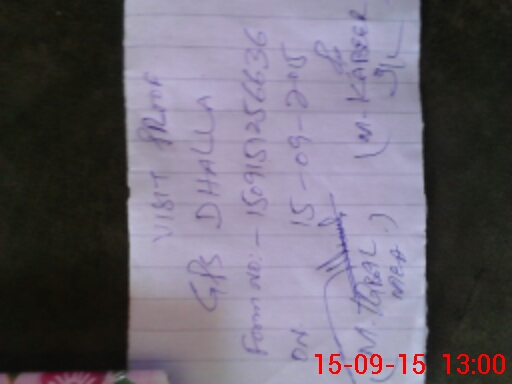 VISIT PROOF
GPS DHALLA
Form no:- 150915125 6636
ON 15-09-2015
(M. IQBAL) (M. KABEER
MEA
15-09-15 13:00